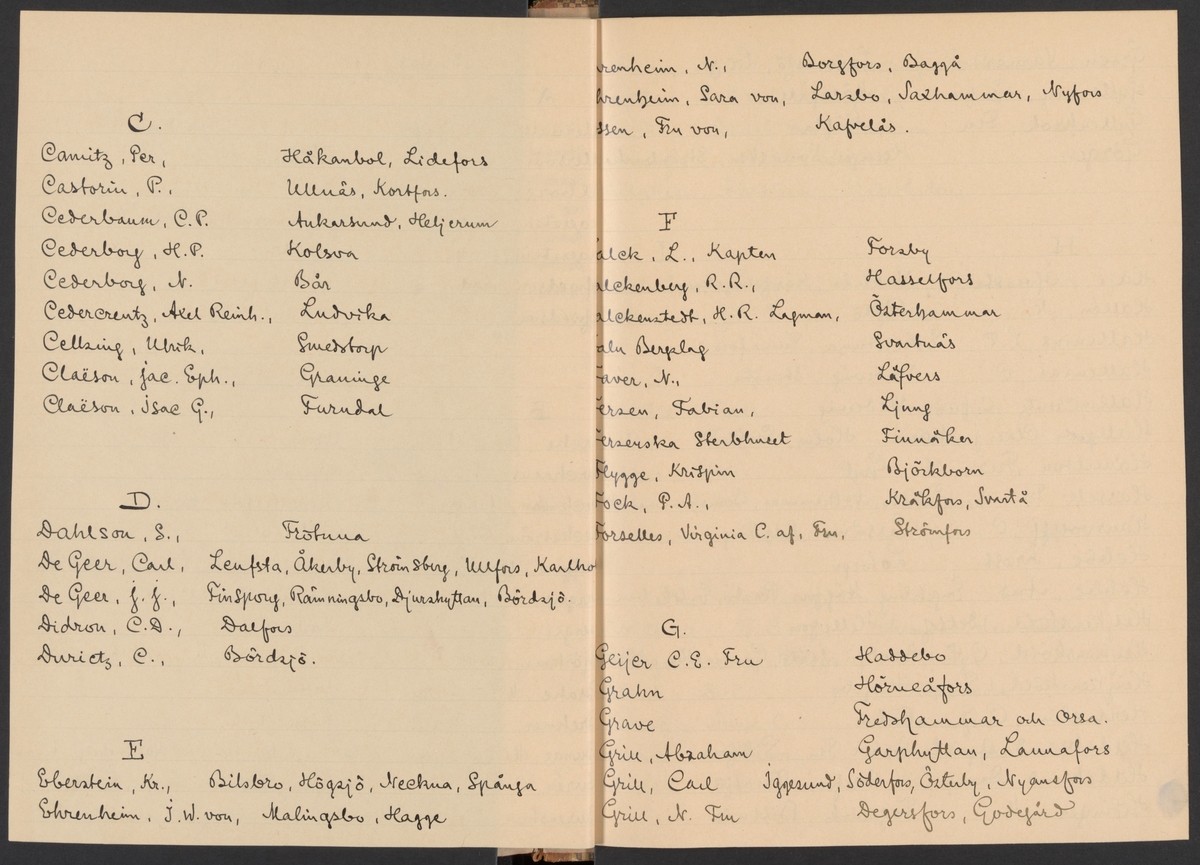 C.
Camitz, Per, Håkanbol, Lidefors
Castorin, P., Ullnäs, Kortfors.
Cederbaum, C.P. Ankarsund, Heljerum
Cederborg, H.P. Kolsva
Cederborg, N. Bår
Cedercrentz, Axel Reinh., Ludvika
Cellzing, Ulrik, Smedstorp
Claëson, Jac. Eph., Graninge
Claëson, Isac G., Furudal
D.
Dahlson, S., Frötuna
De Geer, Carl, Leufsta, Åkerby, Strömsberg, Ullfors, Karlho
De Geer, J. J., Finspong, Rämningsbo, Djurshyttan, Bördsjö.
Didron, C.D., Dalfors
Durietz, C., Bördsjö.
E
Eberstein, Kr., Bilsbro, Högsjö, Neckna, Spånga
Ehrenheim, J.W. von, Malingsbo, Hagge
hrenheim, N., Borgfors, Baggå
hrenheim, Sara von, Larsbo, Saxhammar, Nyfors
ssen, Fru von, Kafvelås.
F
alck, L., Kapten Forsby
alckenberg, R.R., Hasselfors
alckenstedt, H.R. Lagman, Österhammar
alu Bergslag Svartnäs
aver, N., Läfvers
ersen, Fabian, Ljung
ersenska Sterbhuset Finnåker
Flygge, Krispin Björkborn
Fock, P.A., Kråkfors, Svartå
Forselles, Virginia C. af, Fru, Strömfors
G.
Geijer C.E. Fru Haddebo
Grahn Hörneåfors
Grave Fredshammar och Orsa.
Grill, Abraham Garphyttan, Lannafors
Grill, Carl Iggesund, Söderfors, Österby, Nyansfors
Grill, N. Fru Degersfors, Godegård